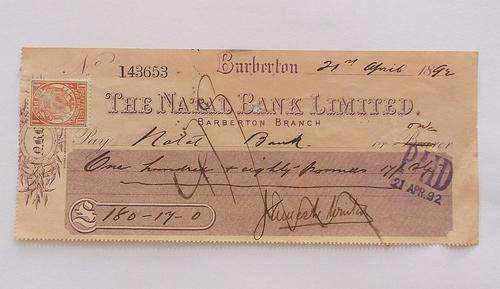 No 143653 Barberton 21st April 1892
THE NATAL BANK LIMITED.
BARBERTON BRANCH
Pay Natal Bank or order
One hundred & eighty Pounds 17/
PAID
21 APR. 92
£ 180-17-0